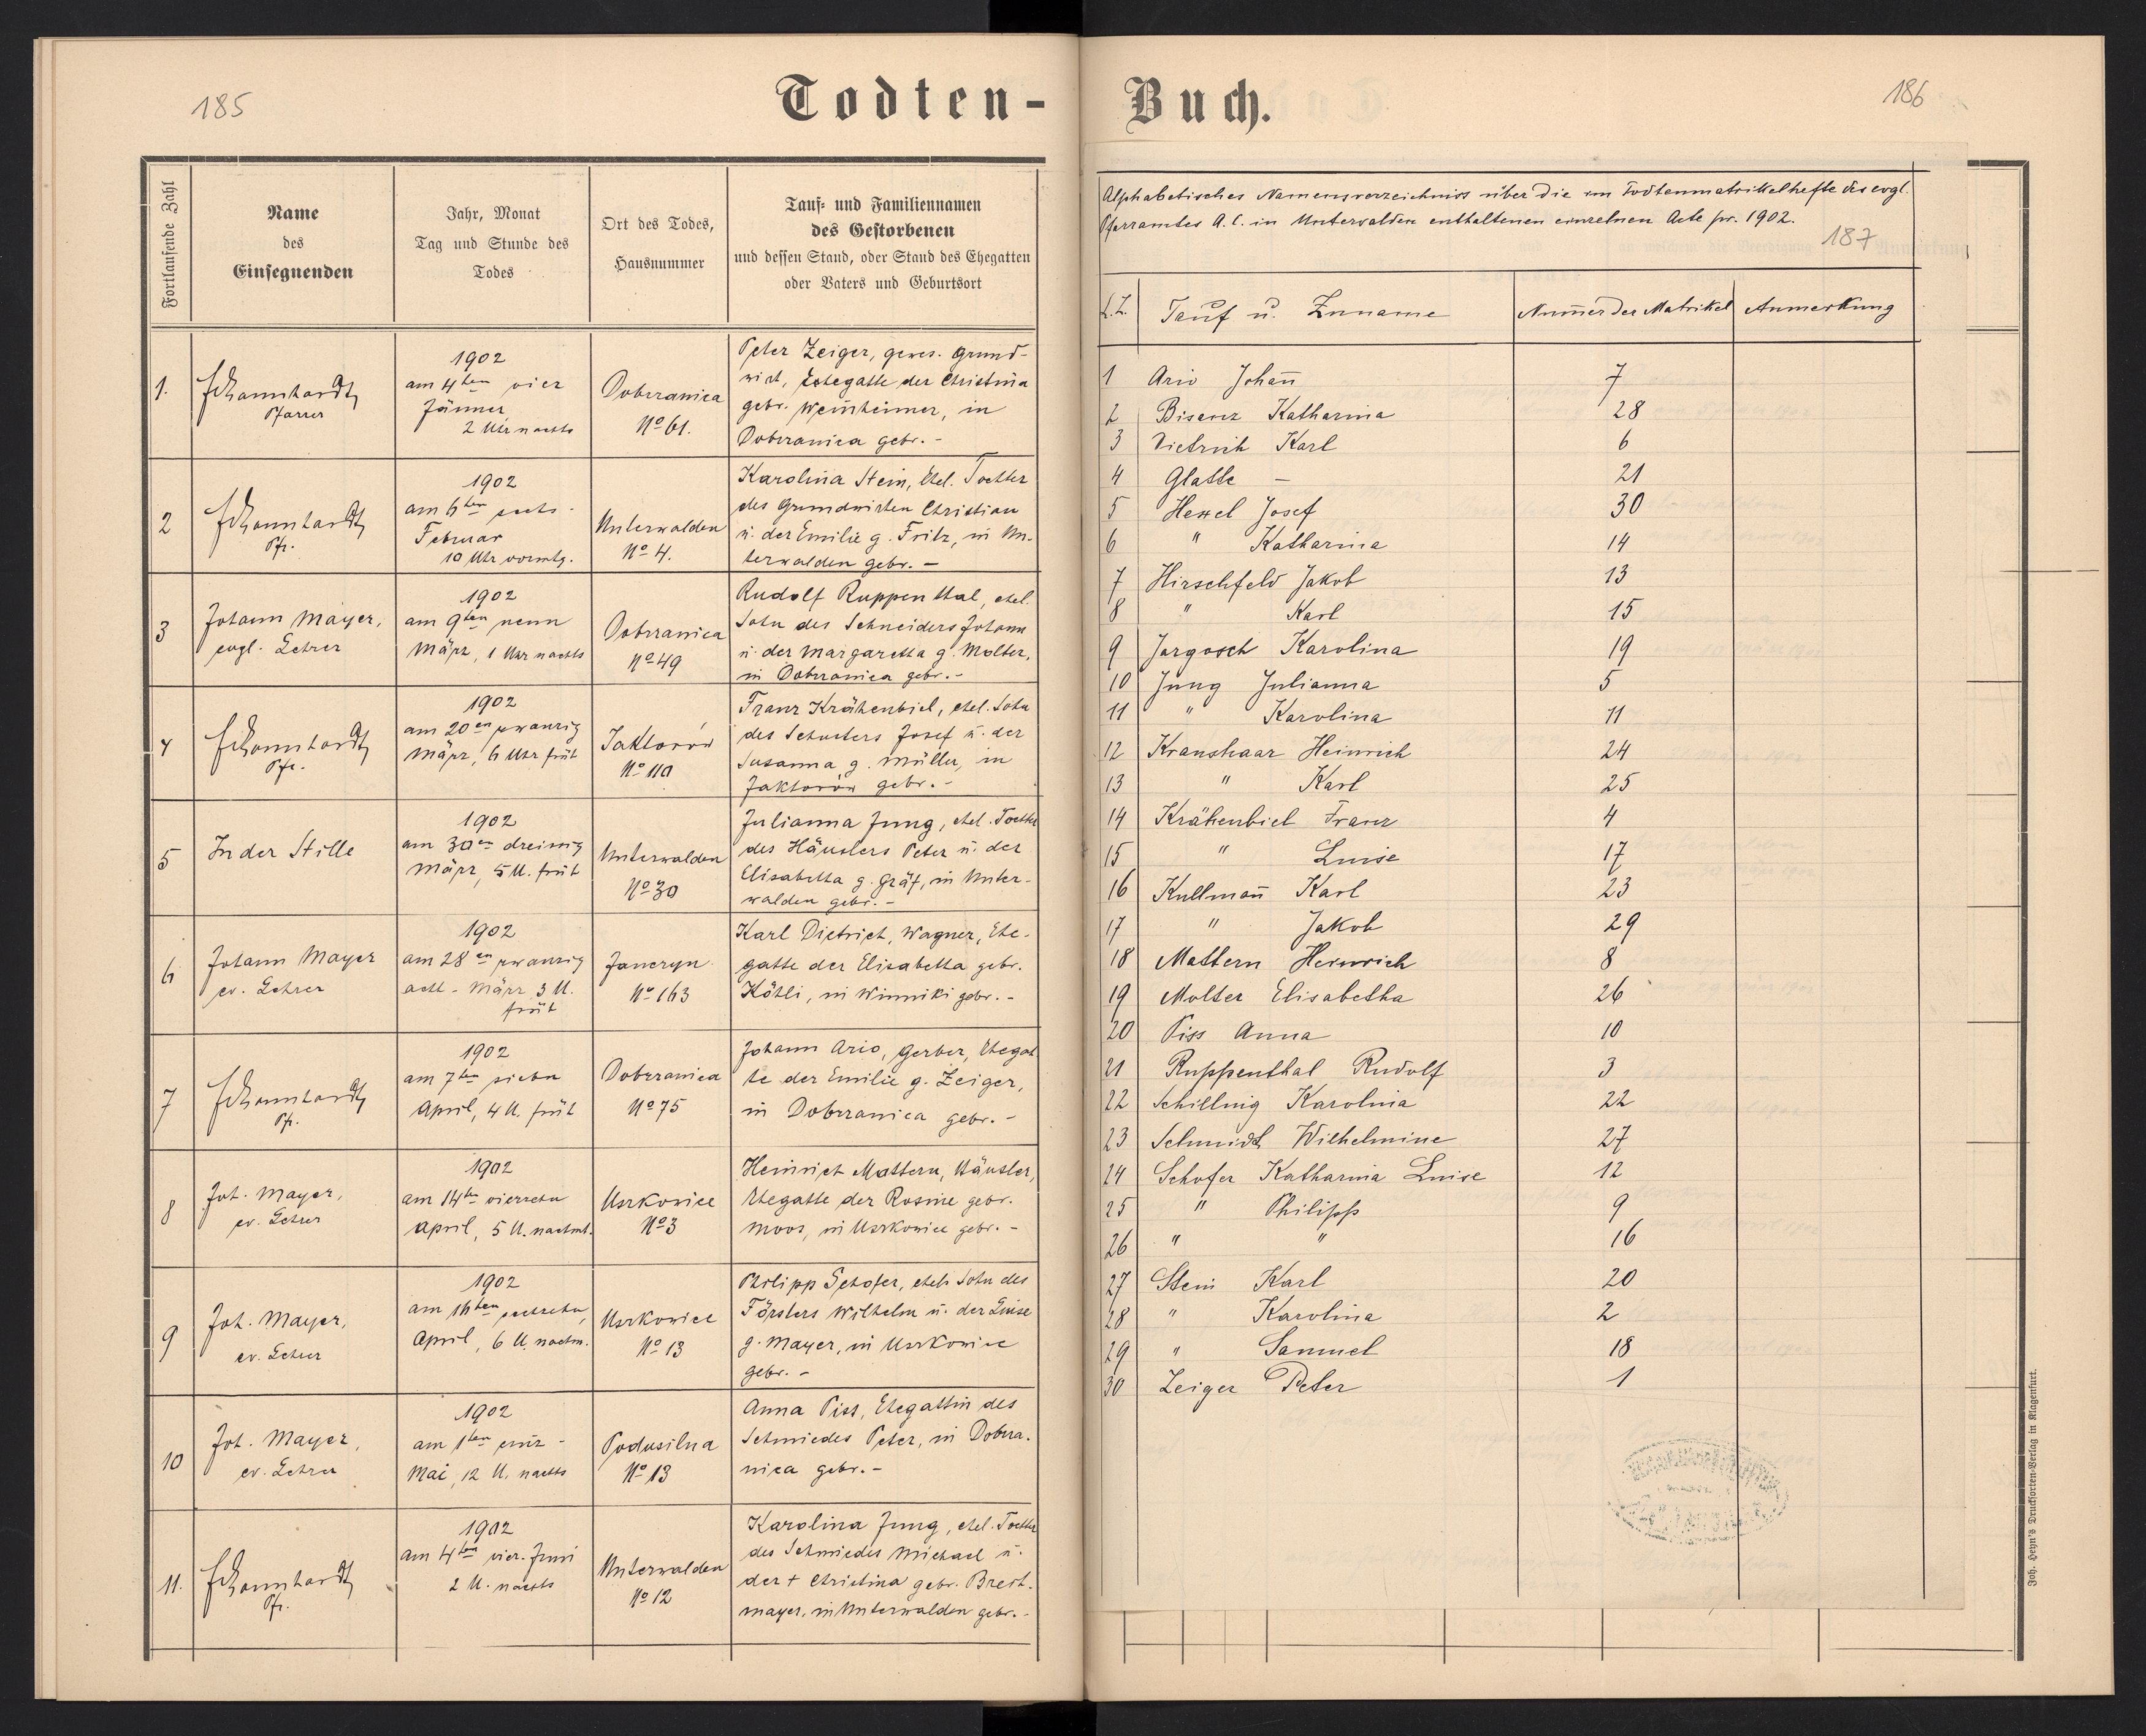 185
Todten-
Fortlaufende Zahl
Name
des
Einsegnenden
Jahr, Monat
Tag und Stunde des
Todes
Ort des Todes,
Hausnummer
Tauf- und Familiennamen
des Gestorbenen
und dessen Stand, oder Stand des Ehegatten
oder Vaters und Geburtsort
1.
Pfarrer
1902
am 4ten vier
Jänner
2 Uhr nachts
Dobrzanica
No 61.
Peter Zeiger, gewes. Grund-
wirt, Ehegatte der Christina
gebr. Weinheimer, in
Dobrzanica gebr. -
2
Pfr.
1902
am 6ten sechs -
Februar
10 Uhr vormtg.
Unterwalden
No 4.
Karolina Stein, Ehel. Tochter
des Grundwirten Christian
u. der Emilie g. Fritz, in Un-
terwalden gebr. -
3
Johann Mayer,
evgl. Lehrer
1902
am 9ten neun
März, 1 Uhr nachts
Dobrzanica
No 49
Rudolf Ruppenthal, ehel.
Sohn des Schneiders Johann
u. der Margaretha g. Molter,
in Dobrzanica gebr. -
4
Pfr.
1902
am 20en zwanzig
März, 6 Uhr früh
Jaktorów
No 110
Franz Krähenbiel, ehel. Sohn
des Schusters Josef u. der
Susanna g. Müller, in
Jaktorów gebr. -
5
In der Stille
1902
am 30en dreissig
März, 5 U. früh
Unterwalden
No 30
Julianna Jung, ehel. Tochter
des Häuslers Peter u. der
Elisabetha g. Gräf, in Unter-
walden gebr. -
6
Johann Mayer
ev. Lehrer
1902
am 28en zwanzig
acht - März 3 U.
früh
Janczyn
No 163
Karl Dietrich, Wagner, Ehe-
gatte der Elisabetha gebr.
Köhli, in Winniki gebr. -
7
Pfr.
1902
am 7ten sieben
April, 4 U. früh
Dobrzanica
No 75
Johann Ario, Gerber, Ehegat-
te der Emilie g. Zeiger,
in Dobrzanica gebr. -
8
Joh. Mayer,
ev. Lehrer
1902
am 14ten vierzehn
April, 5 U. nachmt.
Uszkowice
No 3
Heinrich Mattern, Häusler,
Ehegatte der Rosine gebr.
Moos, in Uszkowice gebr. -
9
Joh. Mayer,
ev. Lehrer
1902
am 16ten sechzehn
April, 6 U. nachm.
Uszkowice
No 13
Philipp Schofer, ehel. Sohn des
Försters Wilhelm u. der Luise
g. Mayer, in Uszkowice
gebr. -
10
Joh. Mayer,
ev. Lehrer
1902
am 1ten eins -
Mai, 12 U. nachts
Podusilna
No 13
Anna Piss, Ehegattin des
Schmiedes Peter, in Dobrza-
nica gebr. -
11.
Pfr.
1902
am 4ten vier. Juni
2 U. nachts
Unterwalden
No 12
Karolina Jung, ehel. Tochter
des Schmiedes Michael u.
der + Christina gebr. Breit-
mayer, in Unterwalden gebr. -
Buch.
186
Alphabetisches Namensverzeichniss über die im Todtenmatrikelhefte des evgl.
Pfarramtes A. C. in Unterwalden enthaltenen einzelnen Acte pr. 1902.
187
L.Z. Tauf u. Zuname Num̅er der Matrikel Anmerkung
1 Ario Johan̅ 7
2 Bisanz Katharina 28
3 Dietrich Karl 6
4 Glatte - 21
5 Hexel Josef 30
6 " Katharina 14
7 Hirschfeld Jakob 13
8 " Karl 15
9 Jorgosch Karolina 19
10 Jung Julianna 5
11 " Karolina 11
12 Kranshaar Heinrich 24
13 " Karl 25
14 Krähenbiel Franz 4
15 " Luise 17
16 Kullman̅ Karl 23
17 " Jakob 29
18 Mattern Heinrich 8
19 Molter Elisabetha 26
20 Piss Anna 10
21 Ruppenthal Rudolf 3
22 Schilling Karolina 22
23 Schmidt Wilhelmine 27
24 Schofer Katharina Luise 12
25 " Philipp 9
26 " " 16
27 Stein Karl 20
28 " Karolina 2
29 " Samuel 18
30 Zeiger Peter 1
Joh. Heyn's Drucksorten-Verlag in Klagenfurt.